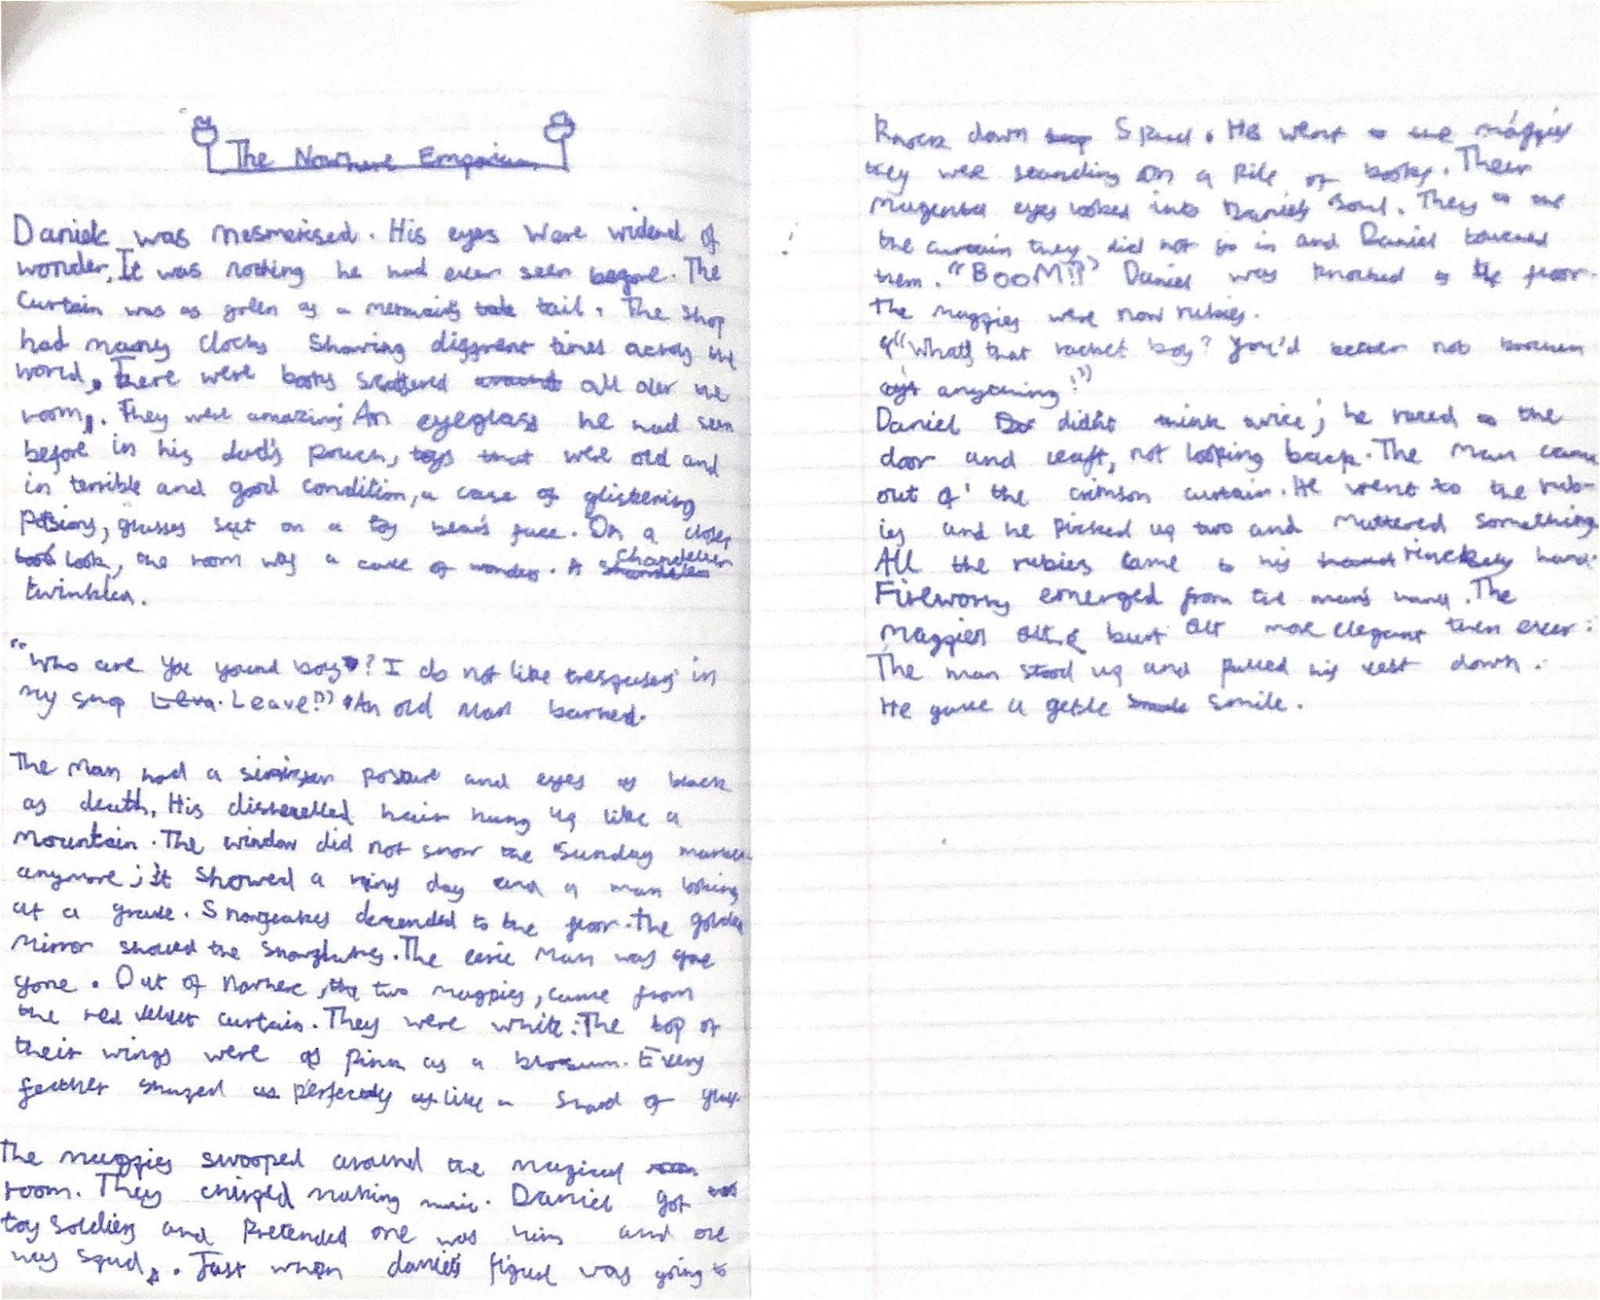 The Nowhere Emporium
Daniel was mesmerised. His eyes were widend of
wonder, It was nothing he had ever seen before. The
Curtain was as green as a mermaids tail. The shop
had many clocks Showing diffrent times across the
world, There were books scattered all over the
room,. They were amazing An eyeglass he had seen
before in his dad's pouch, toys that were old and
in terrible and good condition, a case of glistening
Potions, glasses sat on a toy bear's face. On a closer
look, the room was a cave of wonders. A Chandelier
twinkled.
"Who are you yound boy? I do not like trespassers in
my shop Leave!!" An old Man barked.
The Man had a sinister posture and eyes as black
as death. His dishevelled hair hung up like a
mountain. The window did not show the Sunday market
anymore; it Showed a rainy day and a man looking
at a grave. Snowflakes decended to the floor. The golden
Mirror showed the Snowflakes. The eerie Man was
gone. Out of nowhere, two magpies, came from
the red velvet curtain. They were white. The top of
their wings were as pink as a blossum. Every
feather shaped perfectly like a Shard of glass
The magpies swooped around the magical
room. They chirped making music. Daniel got
toy soldiers and Pretended one was him and one
was Spud. Just when daniel's figure was going to
Knock down Spud. He went to the magpies
they were standing on a pile of books. Their
Magenta eyes looked into Daniel's Soul. They
the curtain they did not go in and Daniel touched
them. "BOOM!!" Daniel was knocked to the floor.
The magpies were now rubies.
"What's that racket boy? You'd better not broken
anything!"
Daniel didn't think twice; he raced to the
door and leaft, not looking back. The Man came
out of the crimson curtain. He went to the rub-
ies and he picked up two and muttered something
All the rubies came to his hand.
Fireworks emerged from the man's hand. The
Magpies burt out more elegant then ever.
The man stood up and pulled his vest down.
He gave a getle smile.